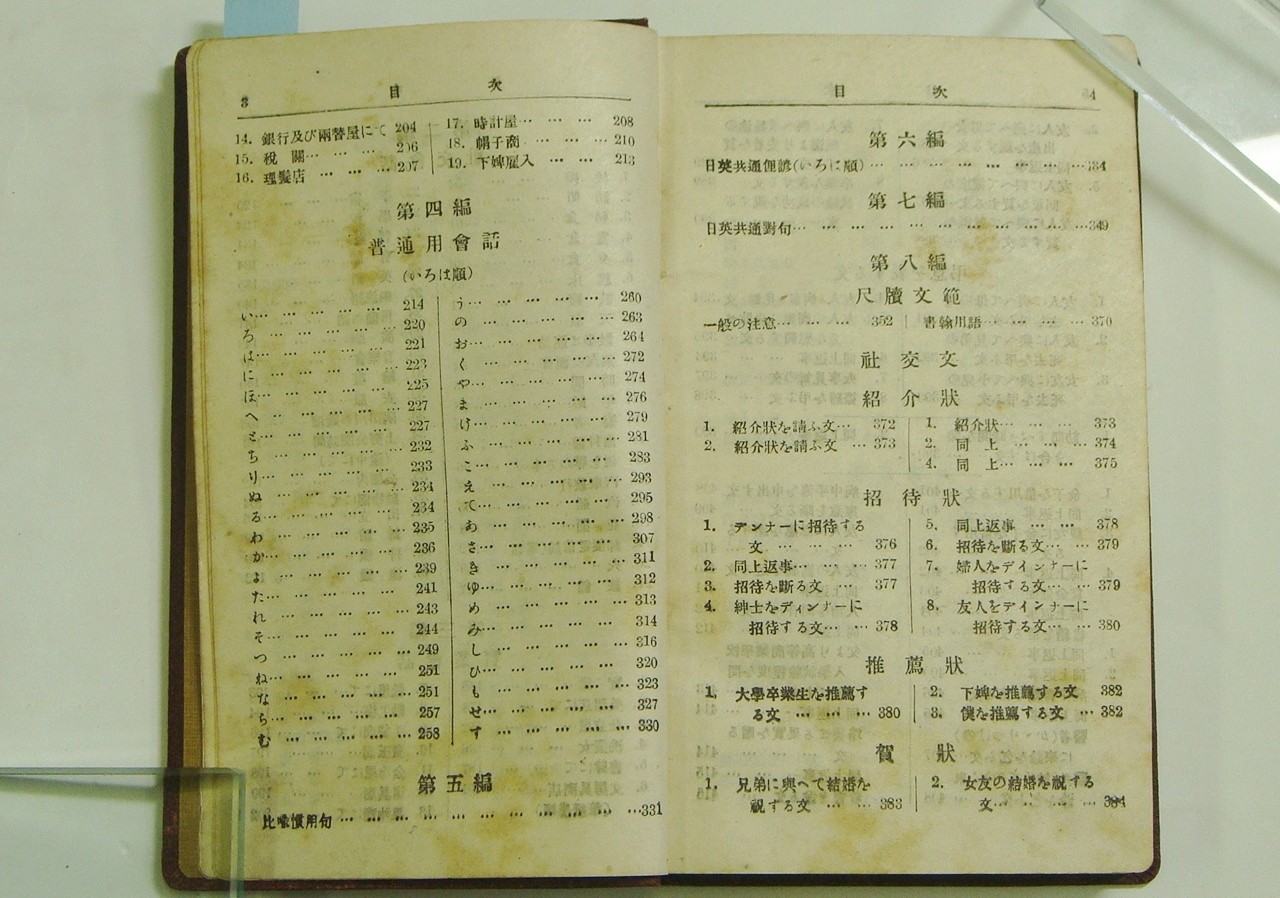 3 目次
14. 銀行及び兩替屋にて 204
15. 稅關… … … … 206
16. 理髮店 … … … 207
17. 時計屋… … … 208
18. 帽子商… … … 210
19. 下婢雇入 … … … 213
第四編
普通用會話
(いろは順)
い… … … … … … 214
ろ… … … … … … 220
は… … … … … … 221
に… … … … … … 223
ほ… … … … … … 225
へ… … … … … … 227
と… … … … … … 227
ち… … … … … … 232
り… … … … … … 233
ぬ… … … … … … 234
る… … … … … … 234
わ… … … … … … 235
か… … … … … … 236
よ… … … … … … 239
た… … … … … … 241
れ… … … … … … 243
そ… … … … … … 244
つ… … … … … … 249
ね… … … … … … 251
な… … … … … … 251
ら… … … … … … 257
む… … … … … … 258
う… … … … … … 260
の… … … … … … 263
お… … … … … … 264
く… … … … … … 272
や… … … … … … 274
ま… … … … … … 276
け… … … … … … 279
ふ… … … … … … 281
こ… … … … … … 283
え… … … … … … 293
て… … … … … … 295
あ… … … … … … 298
さ… … … … … … 307
き… … … … … … 311
ゆ… … … … … … 312
め… … … … … … 313
み… … … … … … 314
し… … … … … … 316
ひ… … … … … … 320
も… … … … … … 323
せ… … … … … … 327
す… … … … … … 330
第五編
比喩慣用句 … … … … … … … … … … …331
目次 4
第六編
日英共通俚諺(いろは順) … … … … … … … …334
第七編
日英共通對句… … … … … … … … … … …349
第八編
尺牘文範
一般の注意… … … … 352
書翰用語… … … … …370
社交文
紹介狀
1. 紹介狀を請ふ文… 372
2. 紹介狀を請ふ文 … 373
1. 紹介狀… … … … 373
2. 同上 … … … … 374
4. 同上… … … … 375
招待狀
1. デンナーに招待する
文 … … … … 376
2. 同上返事… … … 377
3. 招待を斷る文 … … 377
4. 紳士をディンナーに
招待する文… … 378
5. 同上返事 … … … 378
6. 招待を斷る文… … 379
7. 婦人をデインナーに
招待する文… … 379
8. 友人をデインナーに
招待する文… … 380
推薦狀
1. 大學卒業生を推薦す
る文 … … … … 380
2. 下婢を推薦する文 382
3. 僕を推薦する文 … 382
賀狀
1. 兄弟に與へて結婚を
祝する文 … … 383
2. 女友の結婚を祝する
文… … … … … 384